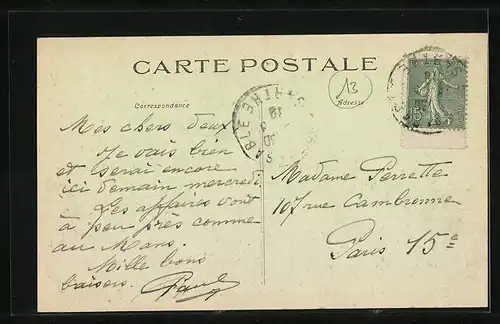 CARTE POSTALE
13
Correspondance
Adresse
SABLÉ
SARTHE
Mes chers deux
Je vais bien
et serai encore
ici demain mercredi.
Les affaires vont
à peu près comme
au Mans.
Mille bons
baisers. Paul
Madame Perrette
107 rue Cambronne
Paris 15e